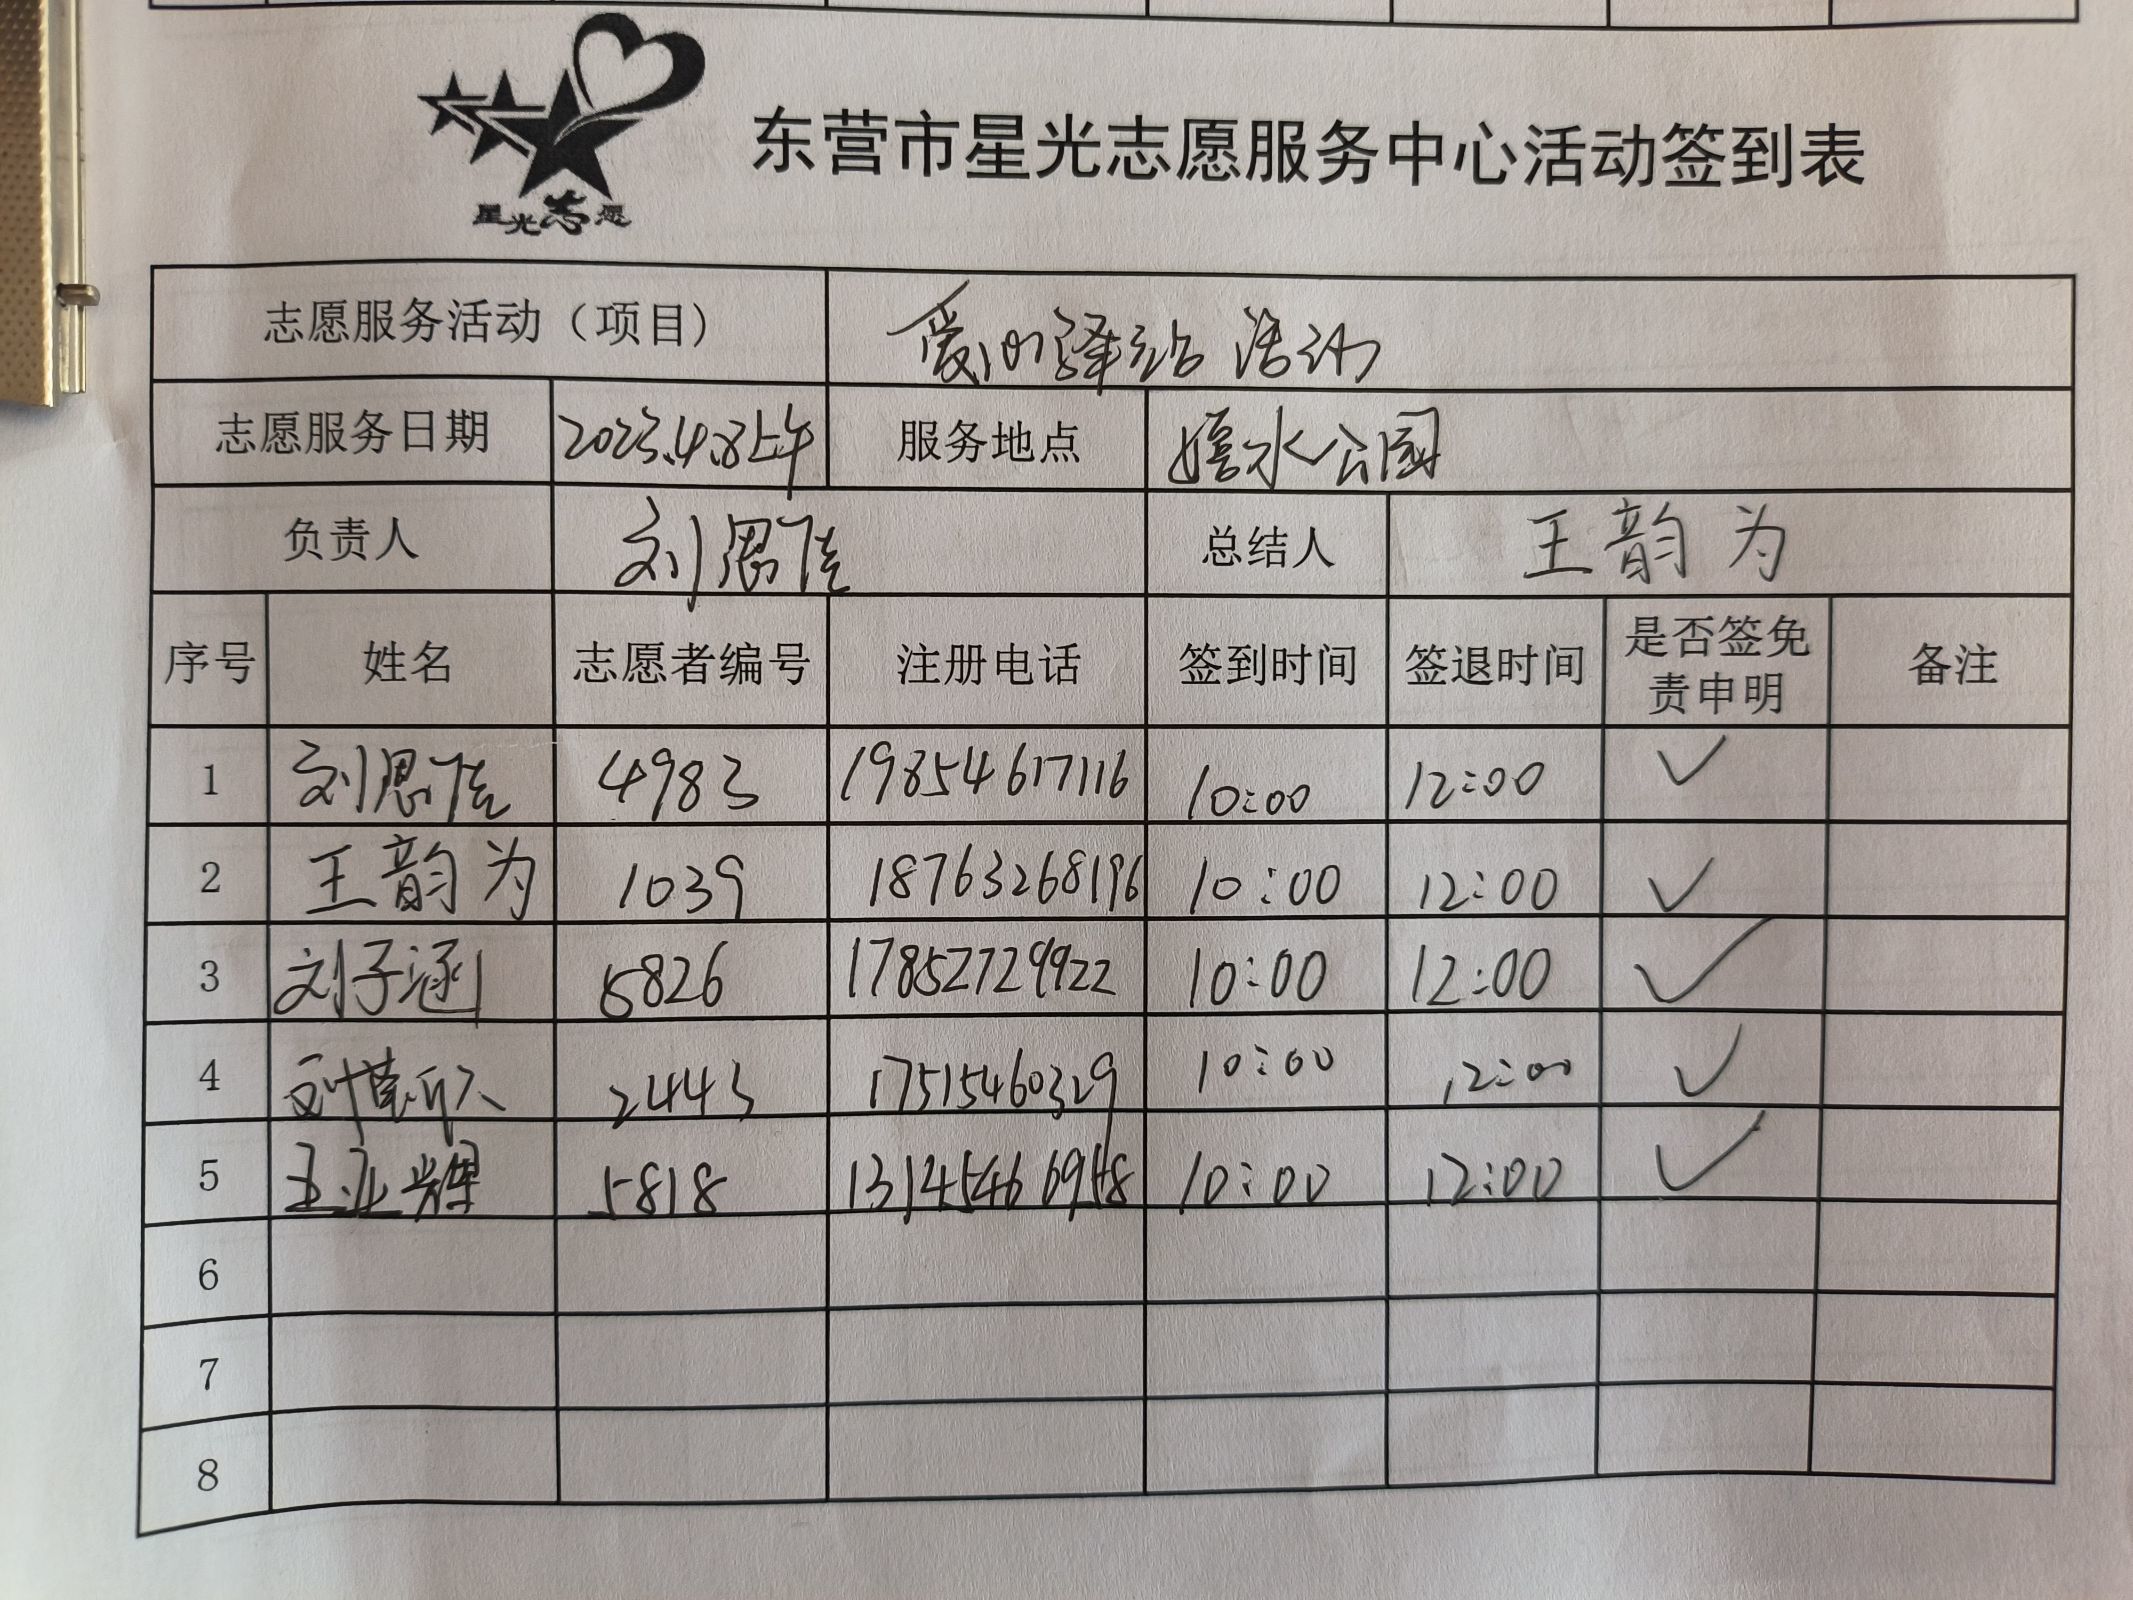 星光志愿
东营市星光志愿服务中心活动签到表
志愿服务活动（项目) 爱的驿站 活动
志愿服务日期 2023.4.8上午 服务地点 嬉水公园
负责人 刘思佳 总结人 王韵为
序号 姓名 志愿者编号 注册电话 签到时间 签退时间 是否签免责申明 备注
1 刘思佳 4983 19854617116 10:00 12:00 ✓
2 王韵为 1039 18763268196 10:00 12:00 ✓
3 刘子涵 5826 17852729922 10:00 12:00 ✓
4 2443 17515460329 10:00 12:00 ✓
5 王业辉 5818 10:00 12:00 ✓
6
7
8